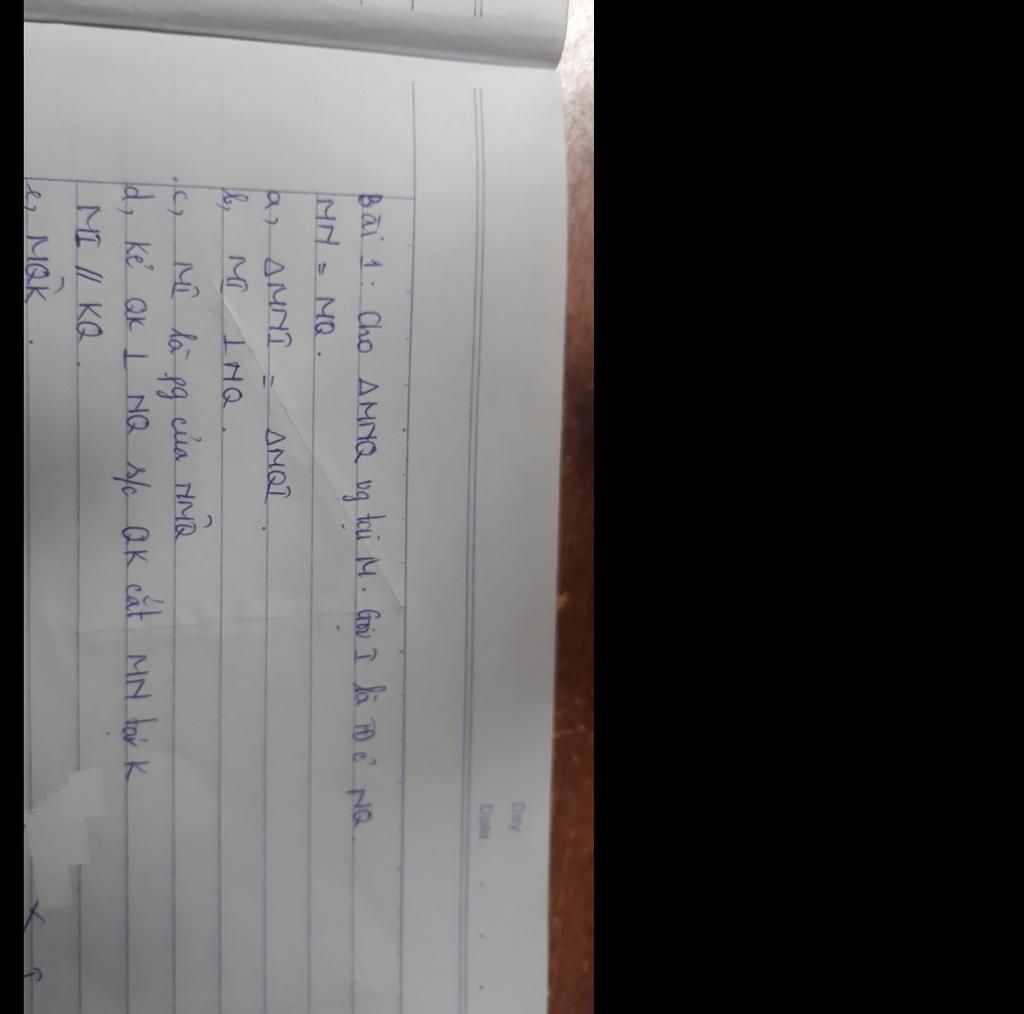 Day
Date
Bài 1: Cho ΔMNQ vg tại M. Gọi I là TĐ c̉ NQ.
MN = MQ.
a, ΔMNI = ΔMQI.
b, MI ⊥ NQ.
c, MI là pg của NM̂Q
d, kẻ QK ⊥ NQ s/c QK cắt MN tại K
MI // KQ.
e, MQ̂K.